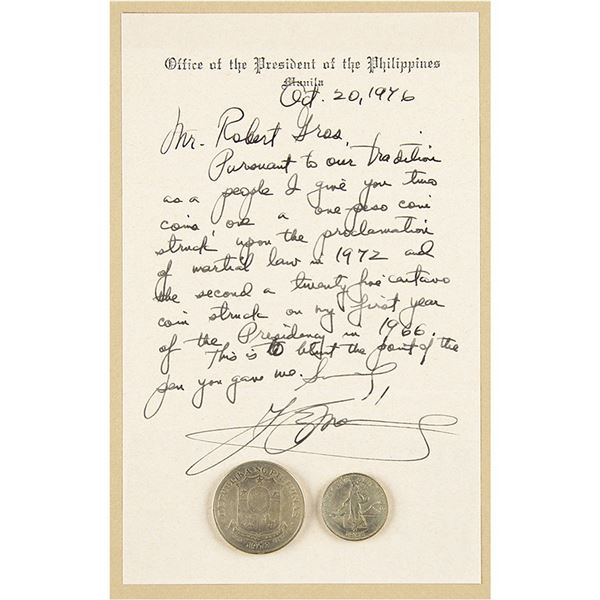 Office of the President of the Philippines
Manila
Oct. 20, 1976
Mr. Robert Gros,
Pursuant to our tradition
as a people I give you two
coins, one a one-peso coin
struck upon the proclamation
of martial law in 1972 and
the second a twenty five centavo
coin struck on my first year
of the Presidency in 1966.
This is to blunt the point of the
pen you gave me.
REPUBLIKA NG PILIPINAS